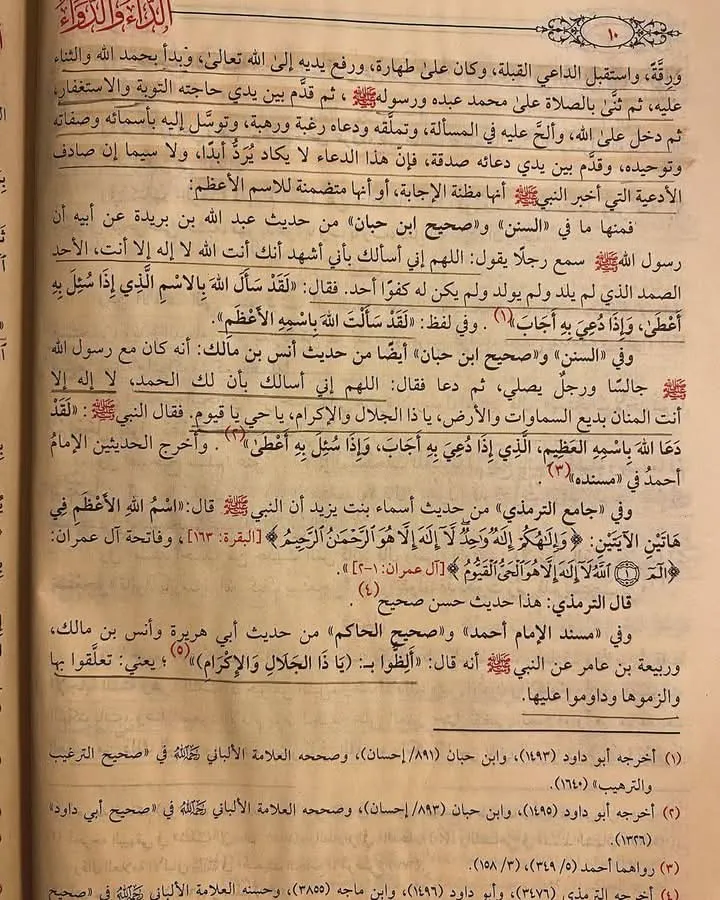 الداء والدواء
١٠
ورِقَّةً، واستقبل الداعي القبلة، وكان على طهارة، ورفع يديه إلى الله تعالى، وبدأ بحمد الله والثناء
عليه، ثم ثنَّى بالصلاة على محمد عبده ورسوله ﷺ، ثم قدَّم بين يدي حاجته التوبة والاستغفار،
ثم دخل على الله، وألحَّ عليه في المسألة، وتملَّقه ودعاه رغبة ورهبة، وتوسَّل إليه بأسمائه وصفاته
وتوحيده، وقدَّم بين يدي دعائه صدقة، فإنَّ هذا الدعاء لا يكاد يُرَدُّ أبدًا، ولا سيما إن صادف
الأدعية التي أخبر النبي ﷺ أنها مظنة الإجابة، أو أنها متضمنة للاسم الأعظم:
فمنها ما في «السنن» و«صحيح ابن حبان» من حديث عبد الله بن بريدة عن أبيه أن
رسول الله ﷺ سمع رجلًا يقول: اللهم إني أسألك بأني أشهد أنك أنت الله لا إله إلا أنت، الأحد
الصمد الذي لم يلد ولم يولد ولم يكن له كفوًا أحد. فقال: «لَقَدْ سَأَلَ اللهَ بِالاسْمِ الَّذِي إِذَا سُئِلَ بِهِ
أَعْطَى، وَإِذَا دُعِيَ بِهِ أَجَابَ»(١). وفي لفظ: «لَقَدْ سَأَلْتَ اللهَ بِاسْمِهِ الأَعْظَمِ».
وفي «السنن» و«صحيح ابن حبان» أيضًا من حديث أنس بن مالك: أنه كان مع رسول الله
ﷺ جالسًا ورجلٌ يصلي، ثم دعا فقال: اللهم إني أسالك بأن لك الحمد، لا إله إلا
أنت المنان بديع السماوات والأرض، يا ذا الجلال والإكرام، يا حي يا قيوم. فقال النبي ﷺ: «لَقَدْ
دَعَا اللهَ بِاسْمِهِ العَظِيمِ، الَّذِي إِذَا دُعِيَ بِهِ أَجَابَ، وَإِذَا سُئِلَ بِهِ أَعْطَى»(٢). وأخرج الحديثين الإمامُ
أحمدُ في «مسنده»(٣).
وفي «جامع الترمذي» من حديث أسماء بنت يزيد أن النبي ﷺ قال: «اسْمُ اللهِ الأَعْظَمِ فِي
هَاتَيْنِ الآيَتَيْنِ: ﴿وَإِلَٰهُكُمْ إِلَٰهٌ وَٰحِدٌ لَّآ إِلَٰهَ إِلَّا هُوَ ٱلرَّحْمَٰنُ ٱلرَّحِيمُ﴾ [البقرة: ١٦٣]، وفاتحة آل عمران:
﴿الٓمٓ ١ ٱللَّهُ لَآ إِلَٰهَ إِلَّا هُوَ ٱلْحَىُّ ٱلْقَيُّومُ﴾ [آل عمران: ١-٢]».
قال الترمذي: هذا حديث حسن صحيح(٤).
وفي «مسند الإمام أحمد» و«صحيح الحاكم» من حديث أبي هريرة وأنس بن مالك،
وربيعة بن عامر عن النبي ﷺ أنه قال: «أَلِظُّوا بـ: (يَا ذَا الجَلَالِ وَالإِكْرَامِ)»(٥)؛ يعني: تعلَّقوا بها
والزموها وداوموا عليها.
(١) أخرجه أبو داود (١٤٩٣)، وابن حبان (٨٩١/ إحسان)، وصححه العلامة الألباني رَحِمَهُ اللهُ في «صحيح الترغيب
والترهيب» (١٦٤٠).
(٢) أخرجه أبو داود (١٤٩٥)، وابن حبان (٨٩٣/ إحسان)، وصححه العلامة الألباني رَحِمَهُ اللهُ في «صحيح أبي داود»
(١٣٢٦).
(٣) رواهما أحمد (٥/ ٣٤٩)، (٣/ ١٥٨).
(٤) أخرجه الترمذي (٣٤٧٦)، وأبو داود (١٤٩٦)، وابن ماجه (٣٨٥٥)، وحسنه العلامة الألباني رَحِمَهُ اللهُ في «صحيح